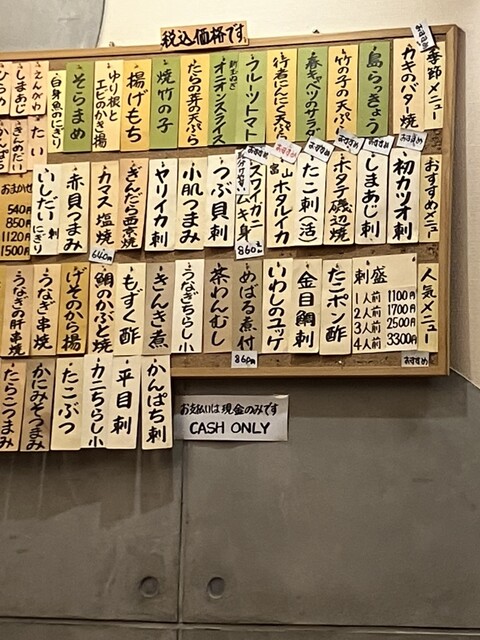 税込価格です。
季節メニュー
カキのバター焼
おすすめ
島らっきょう
竹の子の天ぷら
春キャベツのサラダ
行者にんにく天ぷら
フルーツトマト
新玉ねぎ
オニオンスライス
たらの芽の天ぷら
焼竹の子
揚げもち
ゆり根と
エビのかき揚
そらまめ
白身魚のにぎり
えんがわ
しまあじ
ひらめ
たい
きんめだい
かんぱち
おすすめメニュー
初カツオ刺
おすすめ
しまあじ刺
おすすめ
ホタテ磯辺焼
おすすめ
たこ刺(活)
おすすめ
富山ホタルイカ
スワイガニ
ムキ身
おすすめ
860円
つぶ貝刺
小肌つまみ
ヤリイカ刺
ぎんだら西京焼
カマス塩焼
640円
赤貝つまみ
いしだい刺
にぎり
おまかせ
540円
850円
1120円
1500円
人気メニュー
刺盛
1人前 1100円
2人前 1700円
3人前 2500円
4人前 3300円
おすすめ
たこポン酢
金目鯛刺
いわしのユッケ
めばる煮付
860円
茶わんむし
うなぎちらし小
きんき煮
もずく酢
鯛のかぶと焼
げそのから揚
うなぎ串焼
うなぎの肝串焼
かんぱち刺
平目刺
カニちらし小
たこぶつ
かにみそつまみ
たらこつまみ
お支払いは現金のみです
CASH ONLY